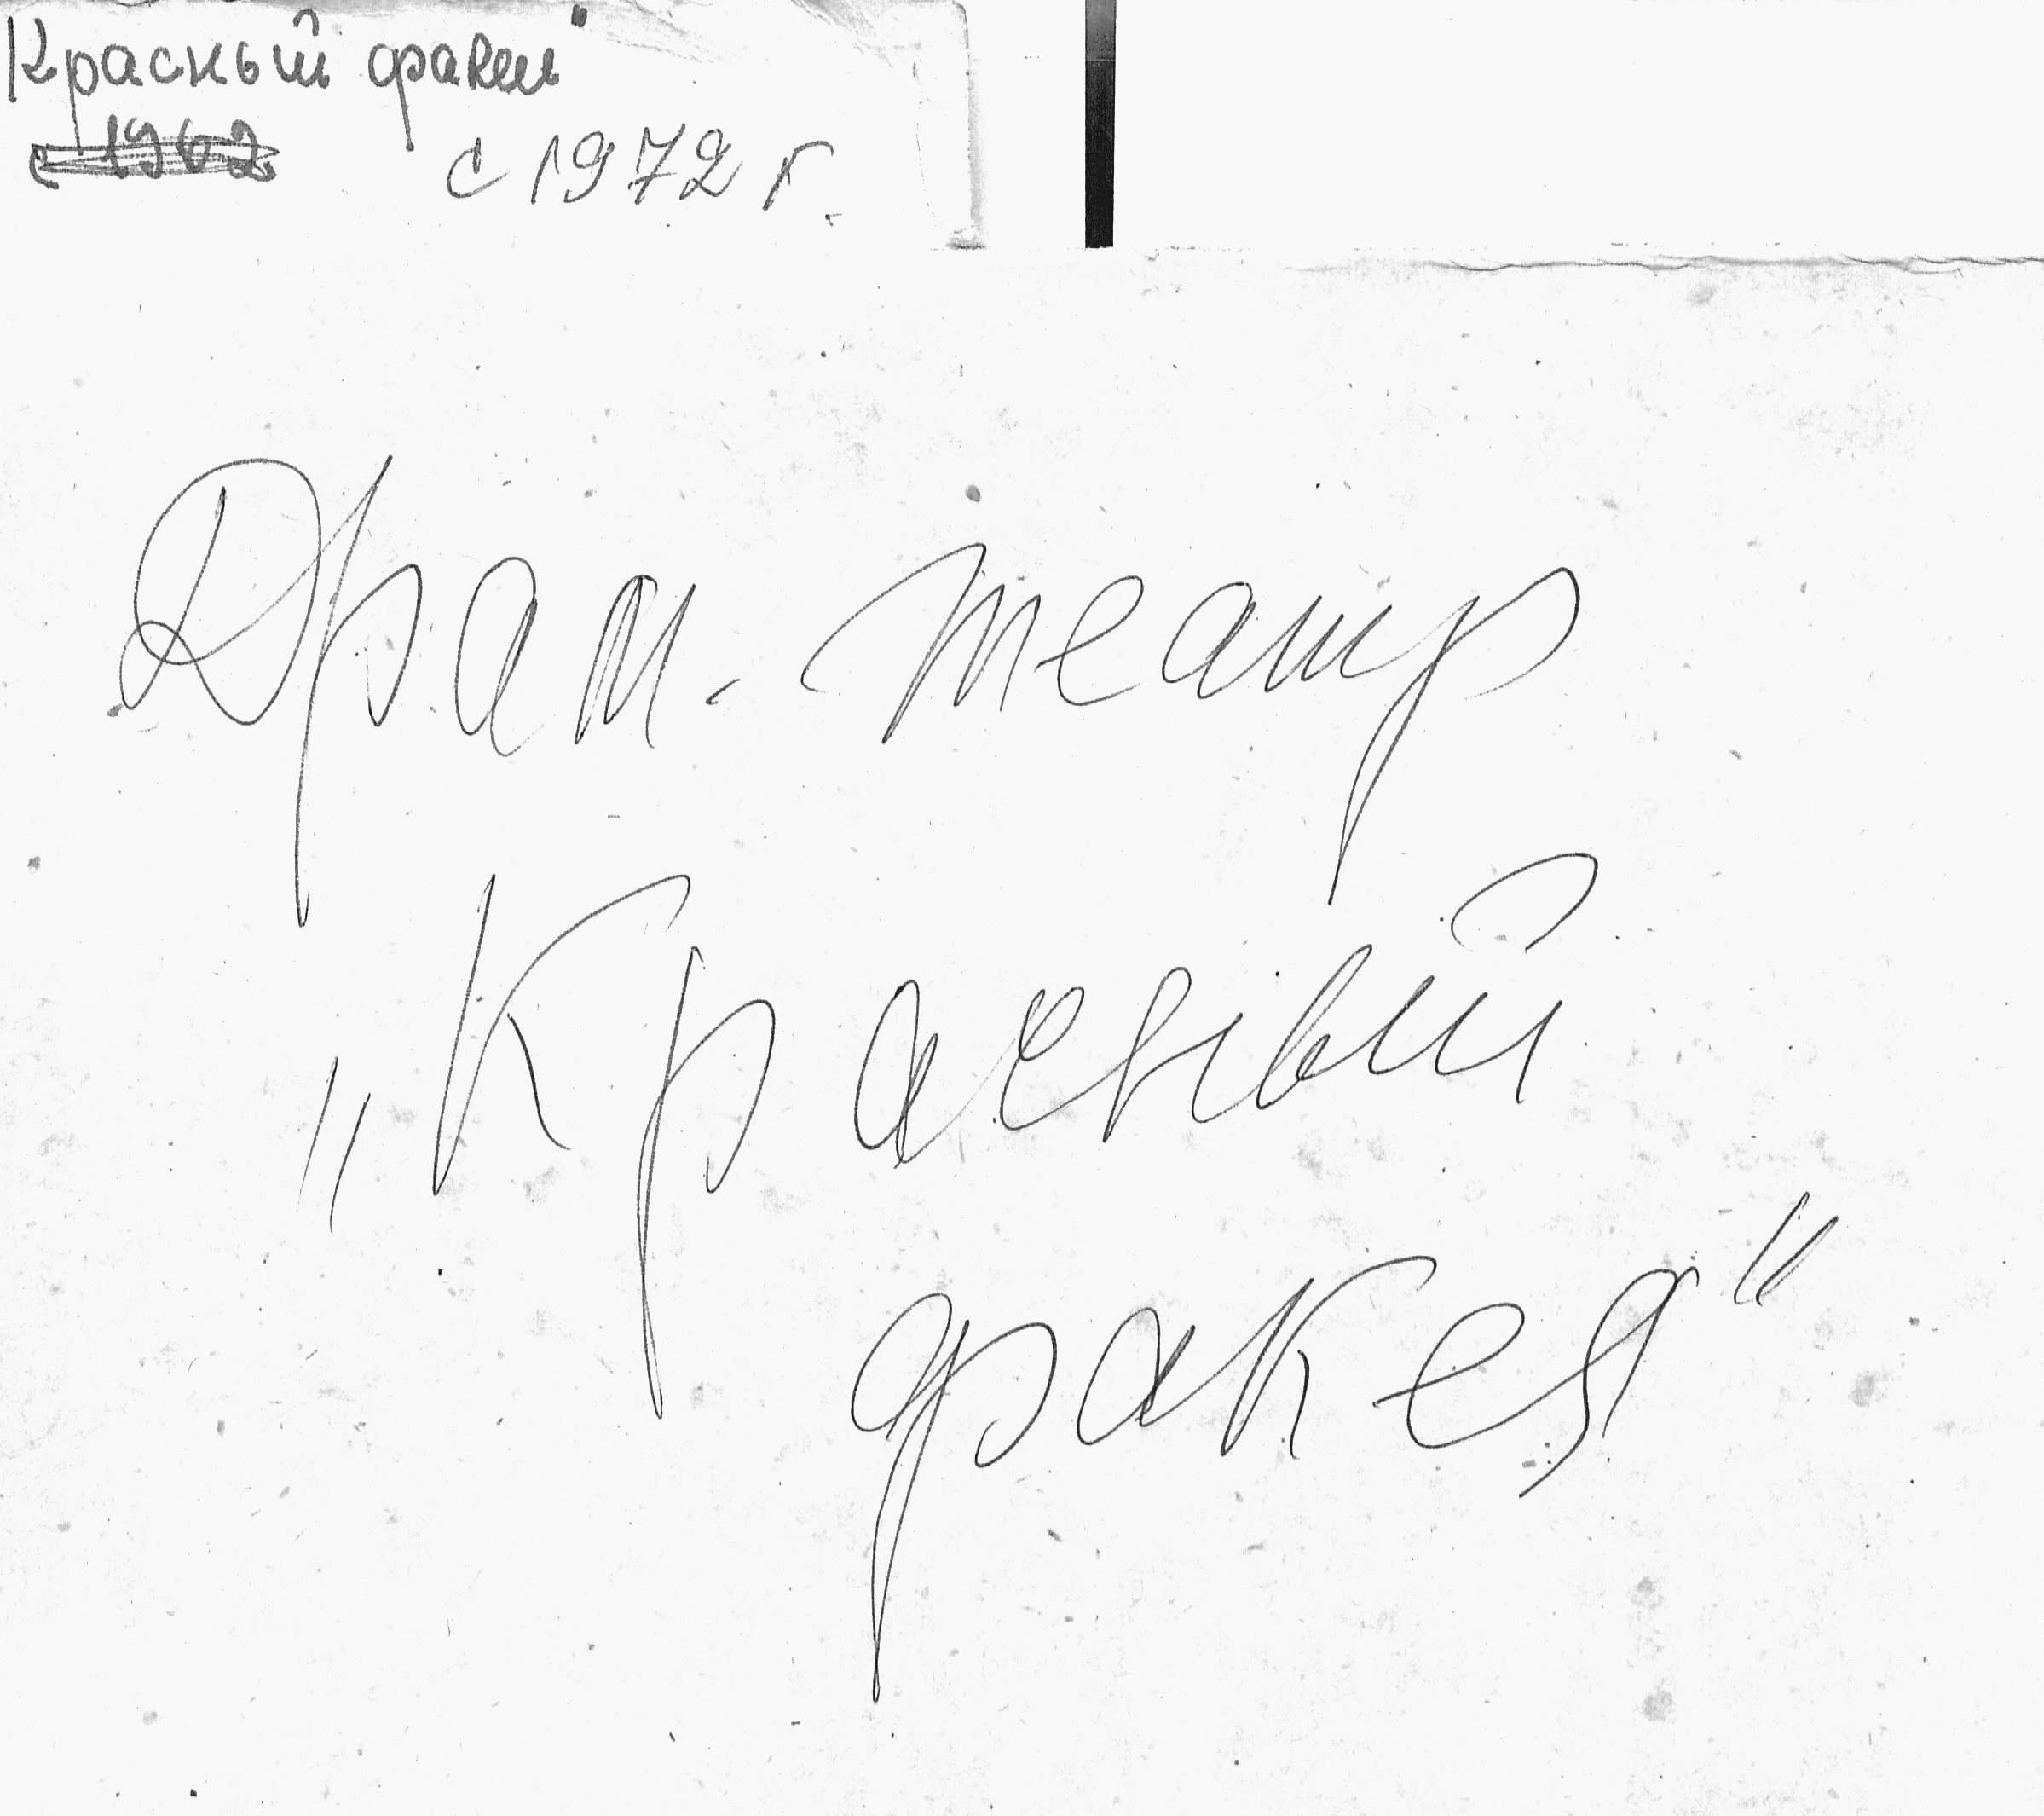 Красный факел"
с 1972 г.
Драм. театр
„Красный
факел"